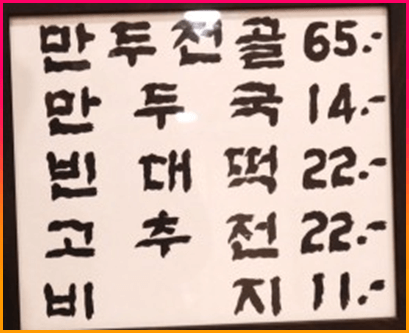 만두전골 65.-
만두국 14.-
빈대떡 22.-
고추전 22.-
비지 11.-